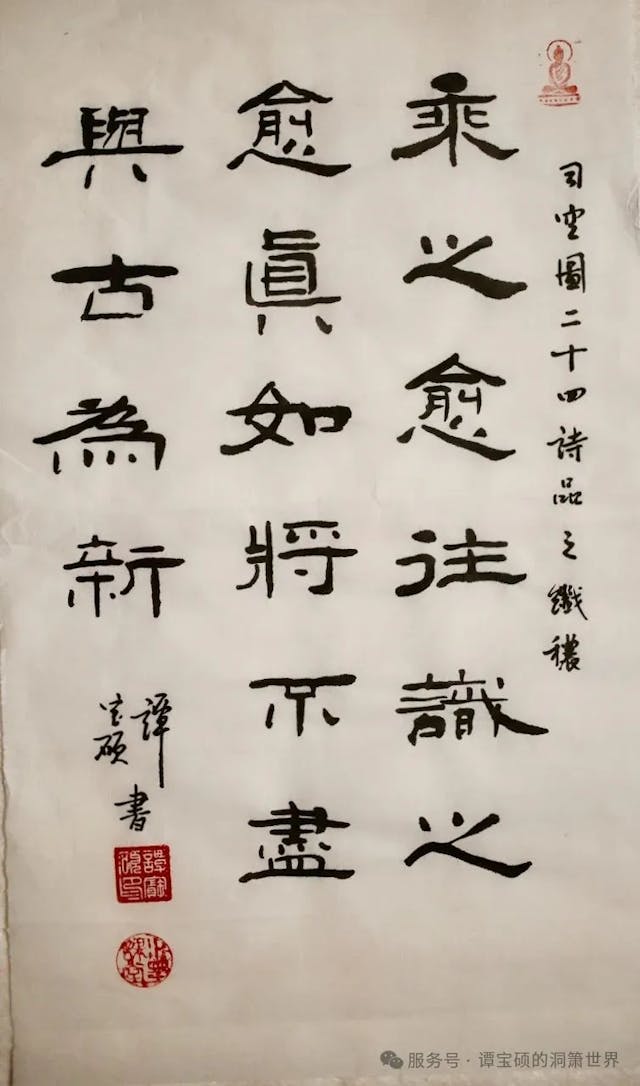 司空圖二十四詩品之纖穠
乘之愈往識之
愈眞如將不盡
與古為新
譚宝硕
書
服务号 · 谭宝硕的洞箫世界